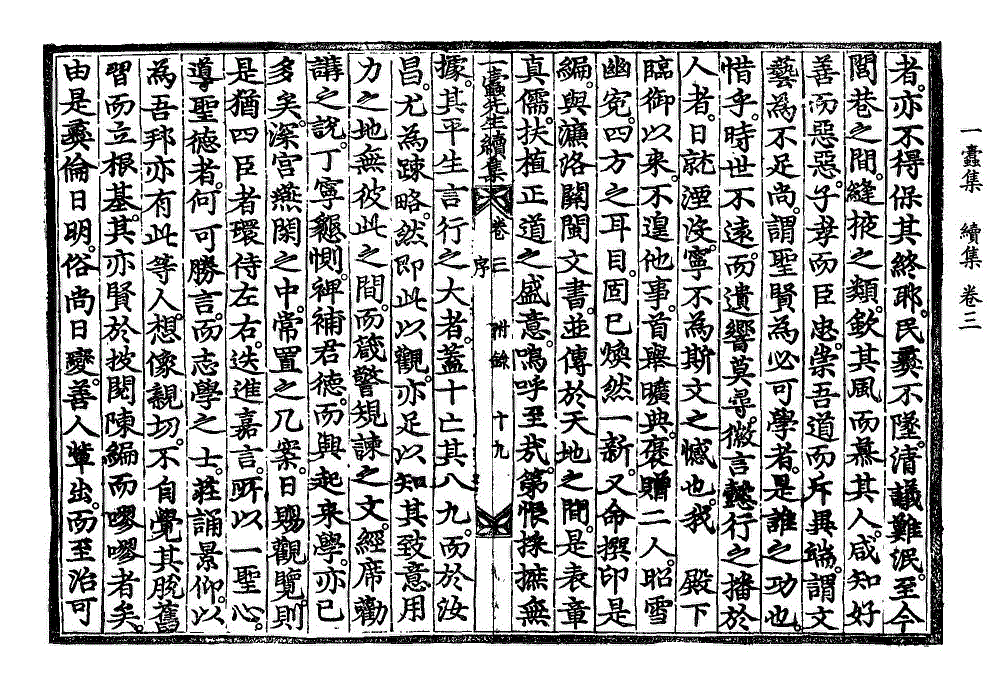 一蠹集 續集 卷三
者。亦不得保其終耶。民彛不墜。淸議難泯。至今
閭巷之間。縫掖之類。欽其風而慕其人。咸知好
善而惡惡。子孝而臣忠。崇吾道而斥異端。謂文
藝爲不足尙。謂聖賢爲必可學者。是誰之功也。
惜乎。時世不遠。而遺響莫尋。微言懿行之播於
人者。日就湮沒。寧不爲斯文之憾也。我 殿下
臨御以來。不遑他事。首擧曠典。褒贈二人。昭雪
幽寃。四方之耳目。固已煥然一新。又命撰印是
編。與濂洛關閩文書。並傳於天地之間。是表章
眞儒。扶植正道之盛意。嗚呼至哉。第恨採摭無
一蠹先生續集 卷三 附錄 序 十九
據。其平生言行之大者。蓋十亡其八九。而於汝
昌。尤爲踈略。然卽此以觀。亦足以知其致意用
力之地無彼此之間。而箴警規諫之文。經席勸
講之說。丁寧懇惻。裨補君德。而興起來學。亦已
多矣。深宮燕閑之中。常置之几案。日賜觀覽。則
是猶四臣者環侍左右。迭進嘉言。所以一聖心。
導聖德者。何可勝言。而志學之士。莊誦景仰。以
爲吾邦亦有此等人。想像親切。不自覺其脫舊
習而立根基。其亦賢於披閱陳編而嘐嘐者矣。
由是彛倫日明。俗尙日變。善人輩出。而至治可